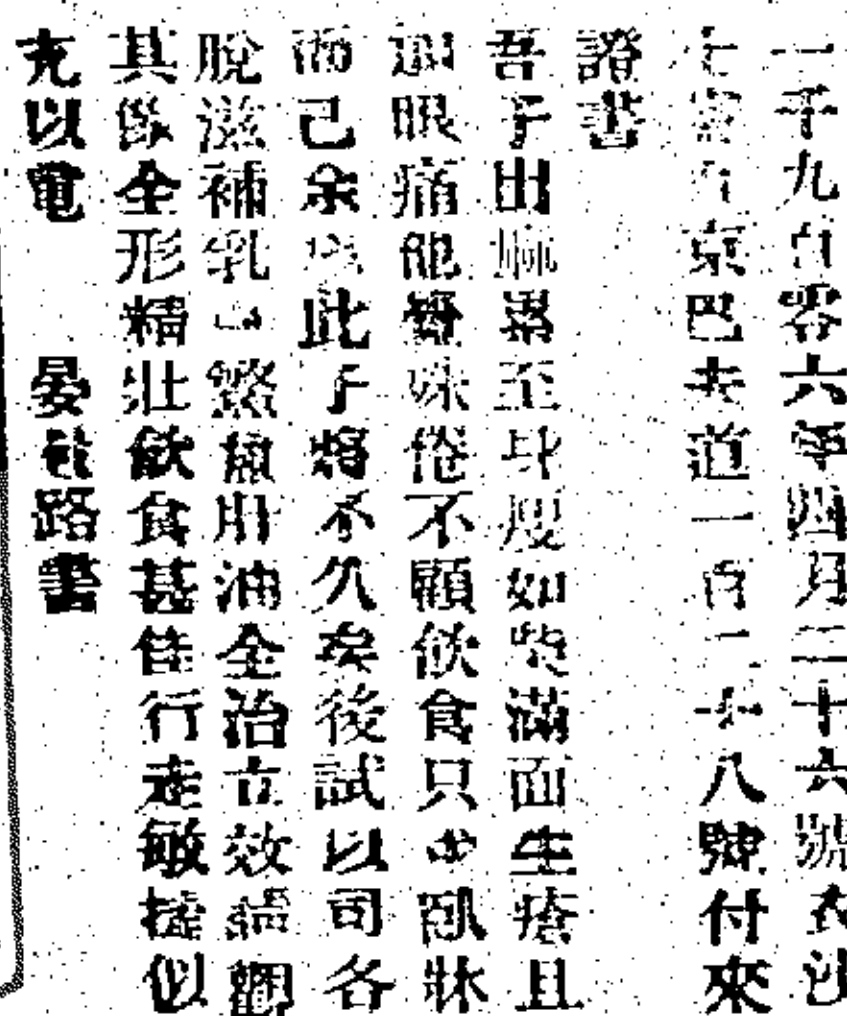 一千九百零六年四月二十六號衣沙
士寓東巴夫道一百二十八號付來
證書
吾子出痲至身瘦如柴滿面生瘡且
眼痛他變昧倦不顧飲食只卧牀
而已余此子將不久矣後試以司各
脫滋補乳鰵魚肝油全治立效請觀
其像全形精壯飲食甚佳行走敏捷似
充以電 晏路書